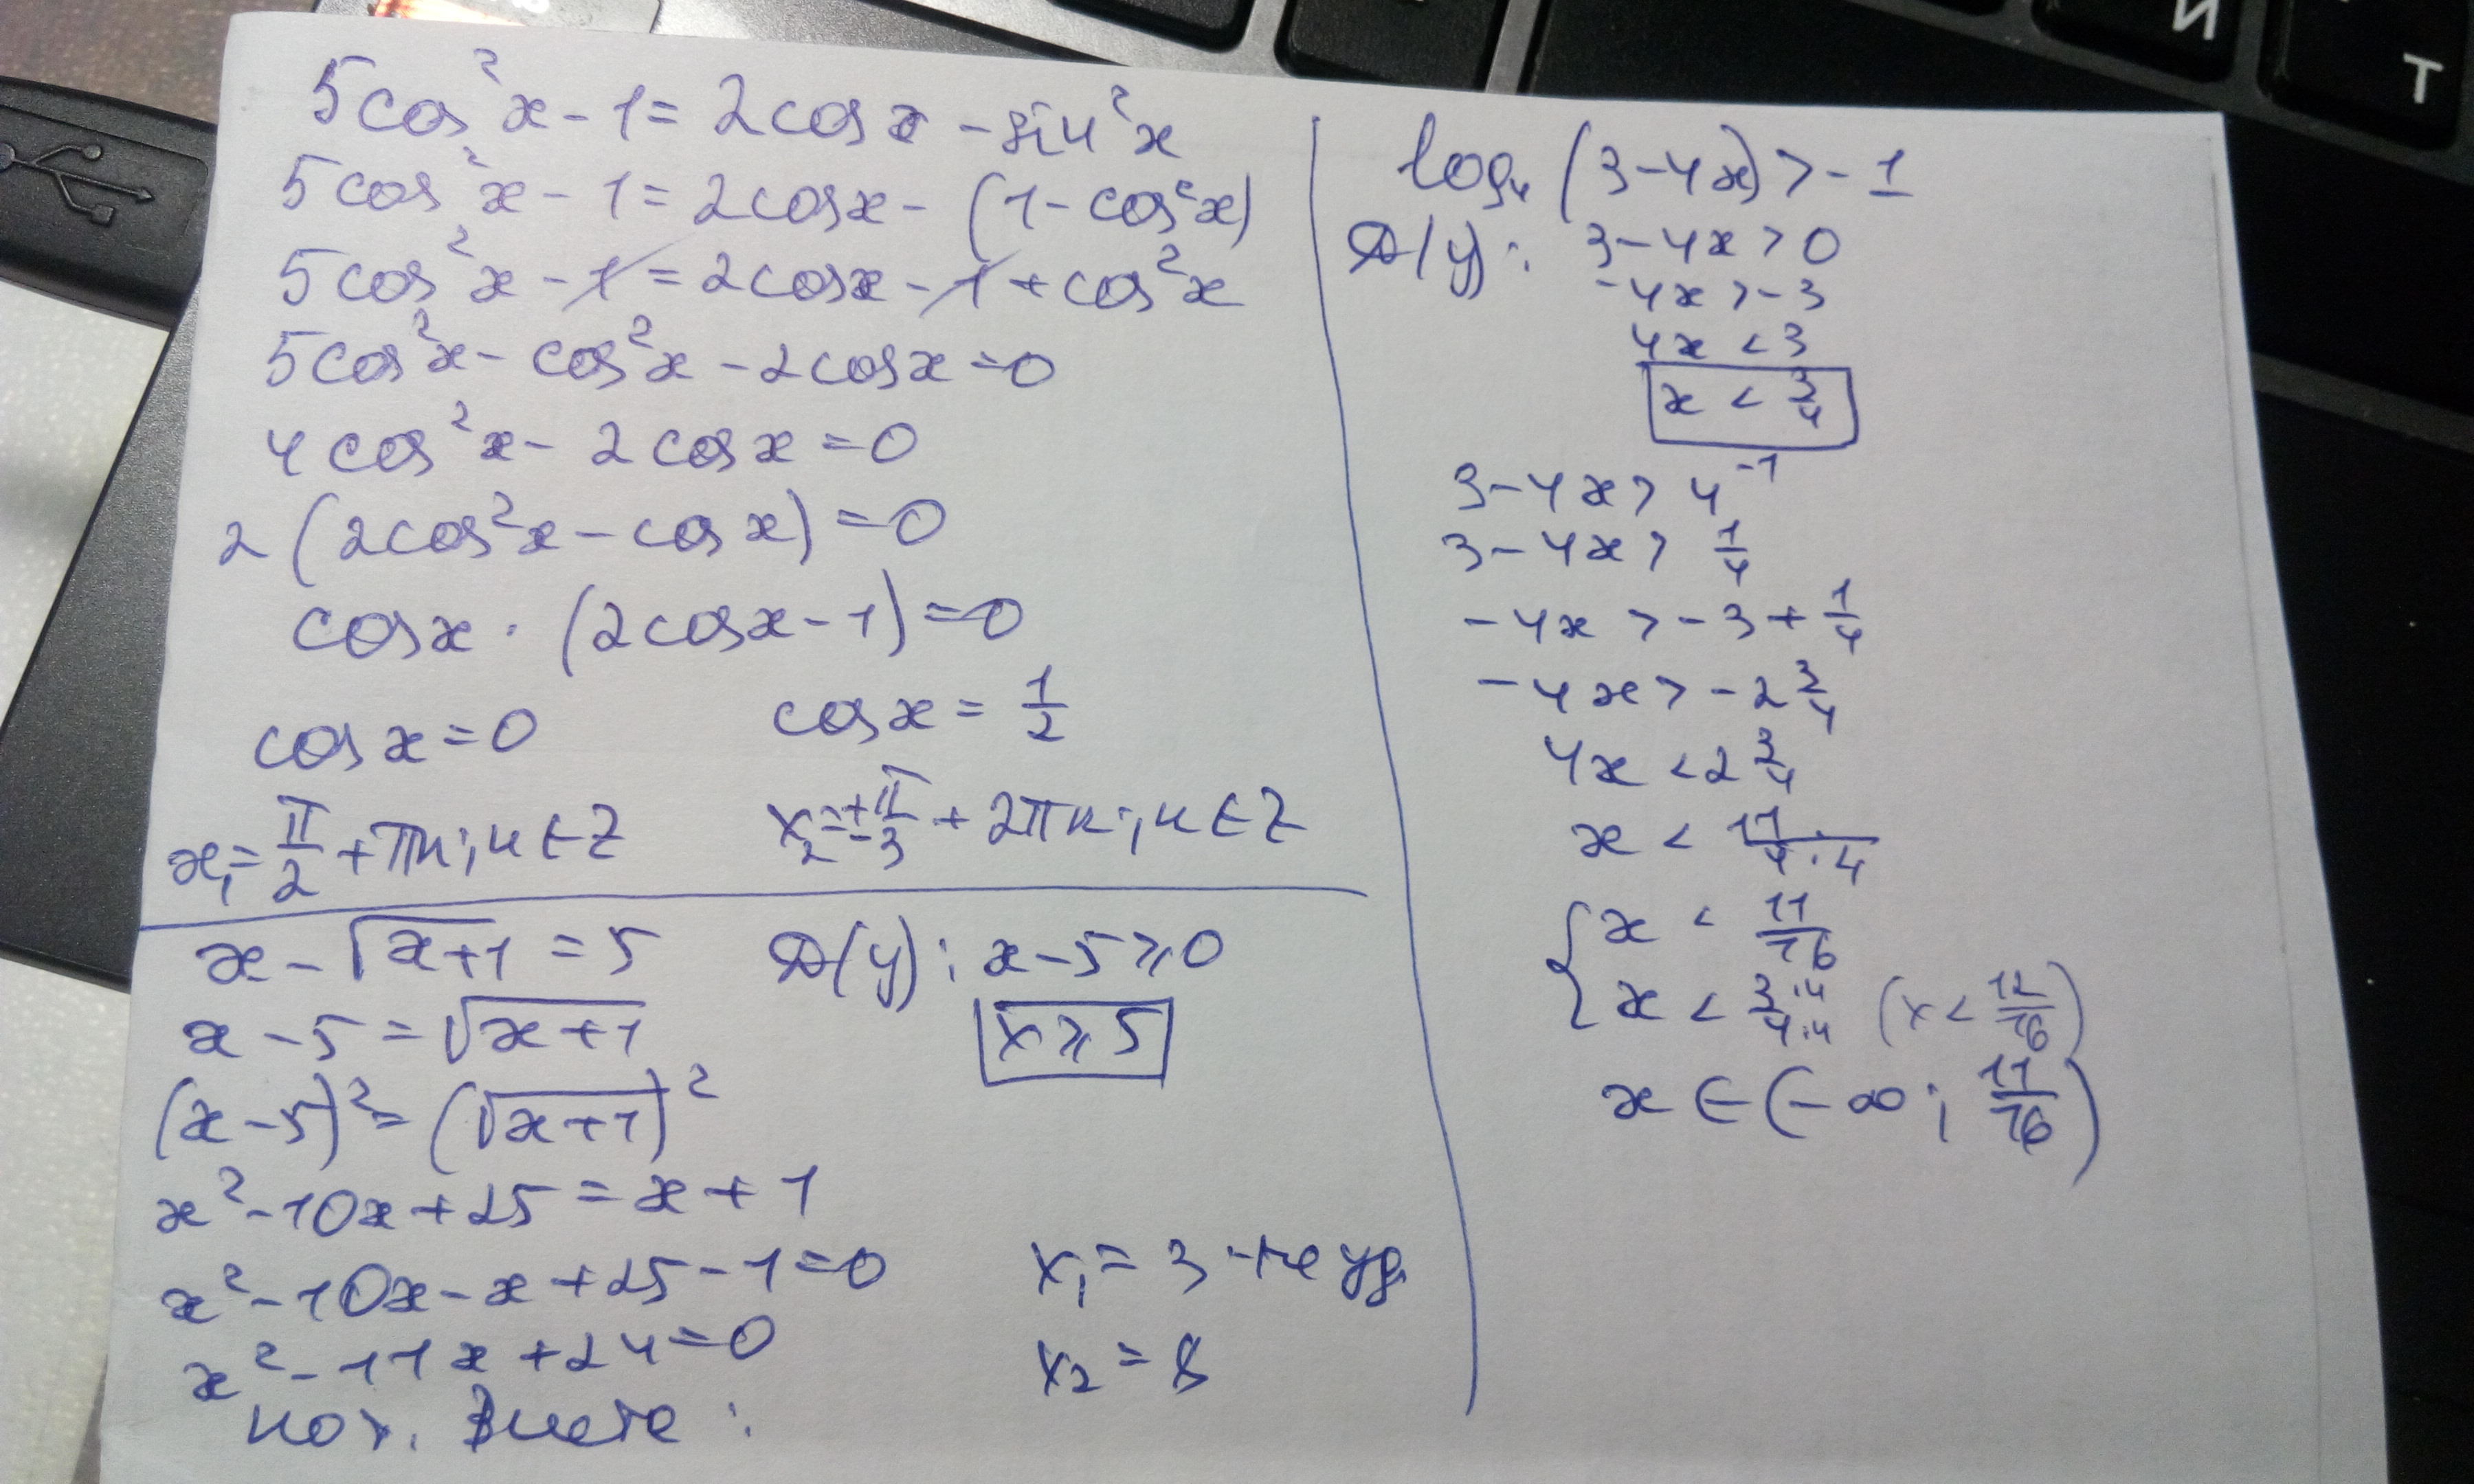 5cos²x - 1 = 2cosx - sin²x
5cos²x - 1 = 2cosx - (1 - cos²x)
5cos²x - 1 = 2cosx - 1 + cos²x
5cos²x - cos²x - 2cosx = 0
4cos²x - 2cosx = 0
2(2cos²x - cosx) = 0
cosx · (2cosx - 1) = 0
cosx = 0 cosx = 1/2
x₁ = π/2 + πn; n ∈ Z x₂ = ±π/3 + 2πn; n ∈ Z
x - √x+1 = 5 D(y): x - 5 ⩾ 0
x - 5 = √x+1 x ⩾ 5
(x - 5)² = (√x+1)²
x² - 10x + 25 = x + 1
x² - 10x - x + 25 - 1 = 0 x₁ = 3 - не уд.
x² - 11x + 24 = 0 x₂ = 8
по т. Виета:
log₄(3 - 4x) > -1
D(y): 3 - 4x > 0
-4x > -3
4x < 3
x < 3/4
3 - 4x > 4⁻¹
3 - 4x > 1/4
-4x > -3 + 1/4
-4x > -2 3/4
4x < 2 3/4
x < 11/4·4
{ x < 11/16
x < 3·4/4·4 (x < 12/16)
x ∈ (-∞; 11/16)
И
Т